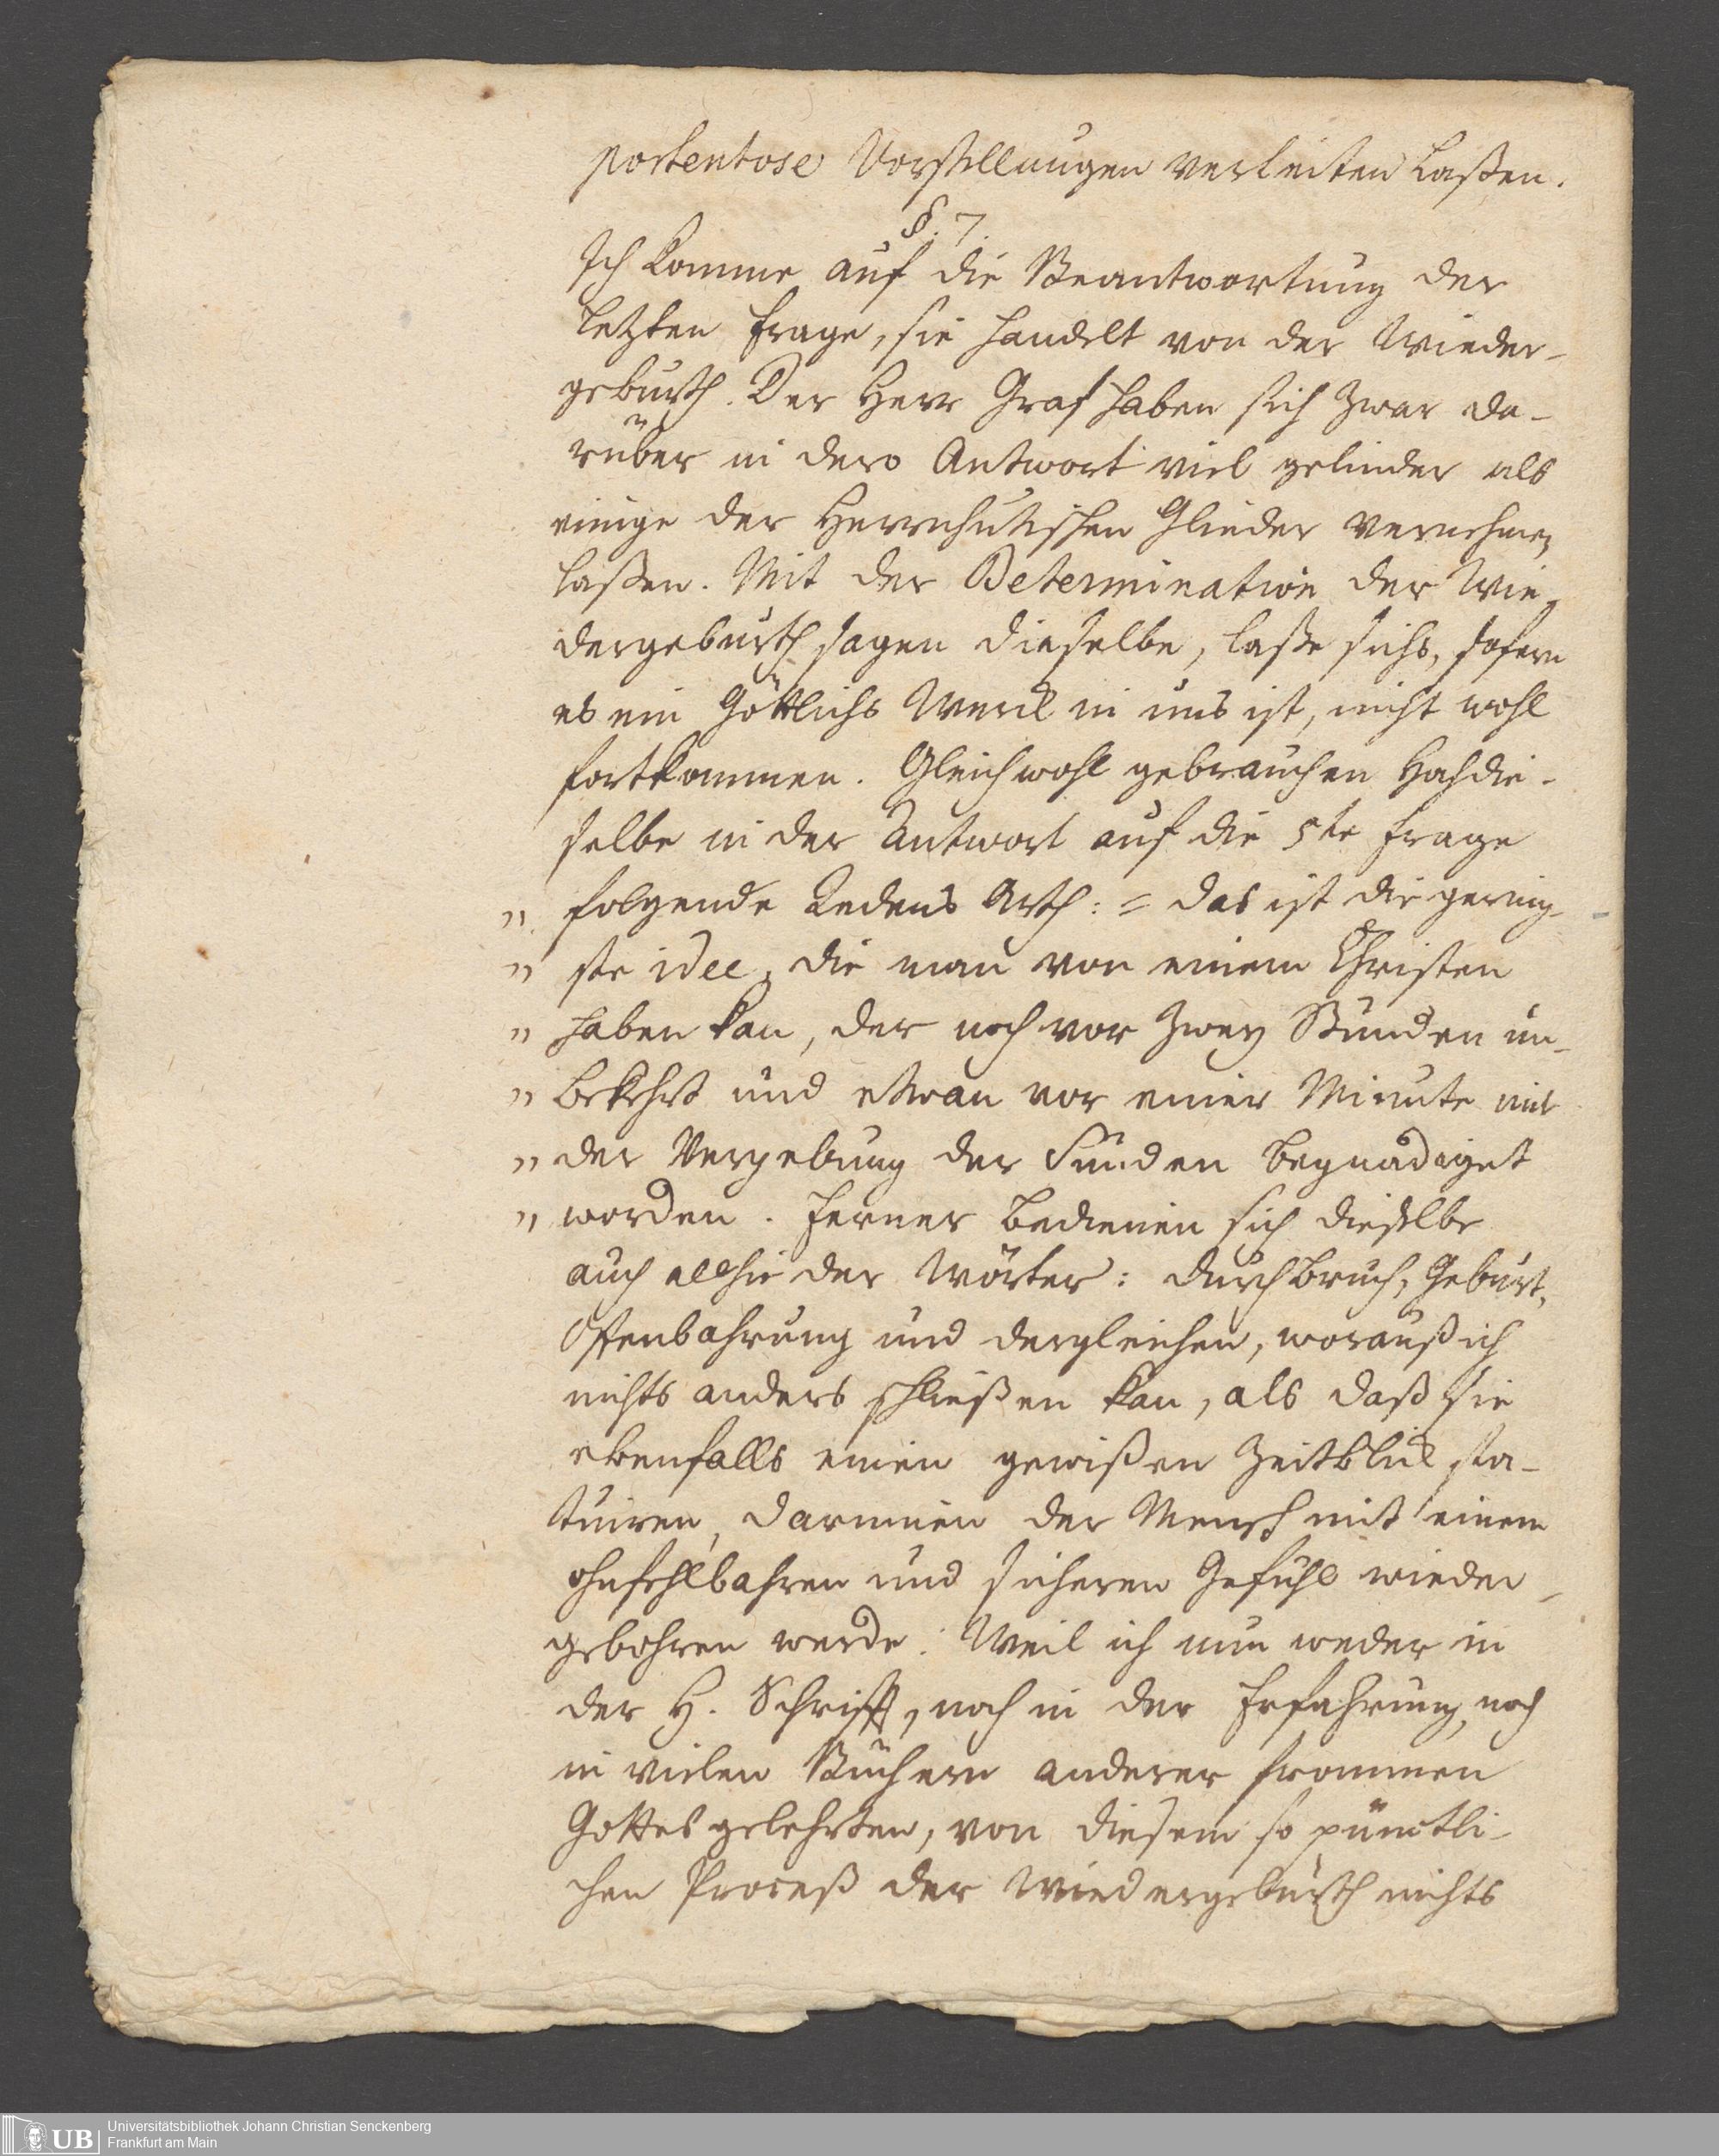 portentose Vorstellungen verleiten laßen.
§. 7.
Ich komme auf die Beantwortung der
letzten Frage, sie handelt von der Wieder-
geburth. Der Herr Graf haben sich zwar da-
rüber in dero Antwort viel gelinder als
einige der Herrnhutischen Glieder vernehmen
laßen. Mit der Determination der Wie-
dergeburth sagen dieselbe, laße sichs, sofern
es ein Göttlichs Werck in uns ist, nicht wohl
fortkommen. Gleichwohl gebrauchen Hochdie-
selbe in der Antwort auf die 5te Frage
„ folgende Redens Arth: = das ist die gering-
„ ste idee, die man von einem Christen
„ haben kan, der noch vor zwey Stunden un-
„ bekehrt und etwan vor einer Minute mit
„ der Vergebung der Sünden begnadiget
„ worden. Ferner bedienen sich dieselbe
auch allhie der Wörter: Durchbruch, Geburt,
Offenbahrung und dergleichen, woraus ich
nichts anders schließen kan, als daß sie
ebenfalls einen gewißen Zeitblick sta-
tuiren, darinnen der Mensch mit einem
ohnfehlbahren und sicheren Gefühl wieder-
gebohren werde. Weil ich nun weder in
der H. Schrifft, noch in der Erfahrung, noch
in vielen Büchern anderer frommen
Gottesgelehrten, von diesem so pünctli-
chen Proceß der Wiedergeburth nichts
UB
Universitätsbibliothek Johann Christian Senckenberg
Frankfurt am Main